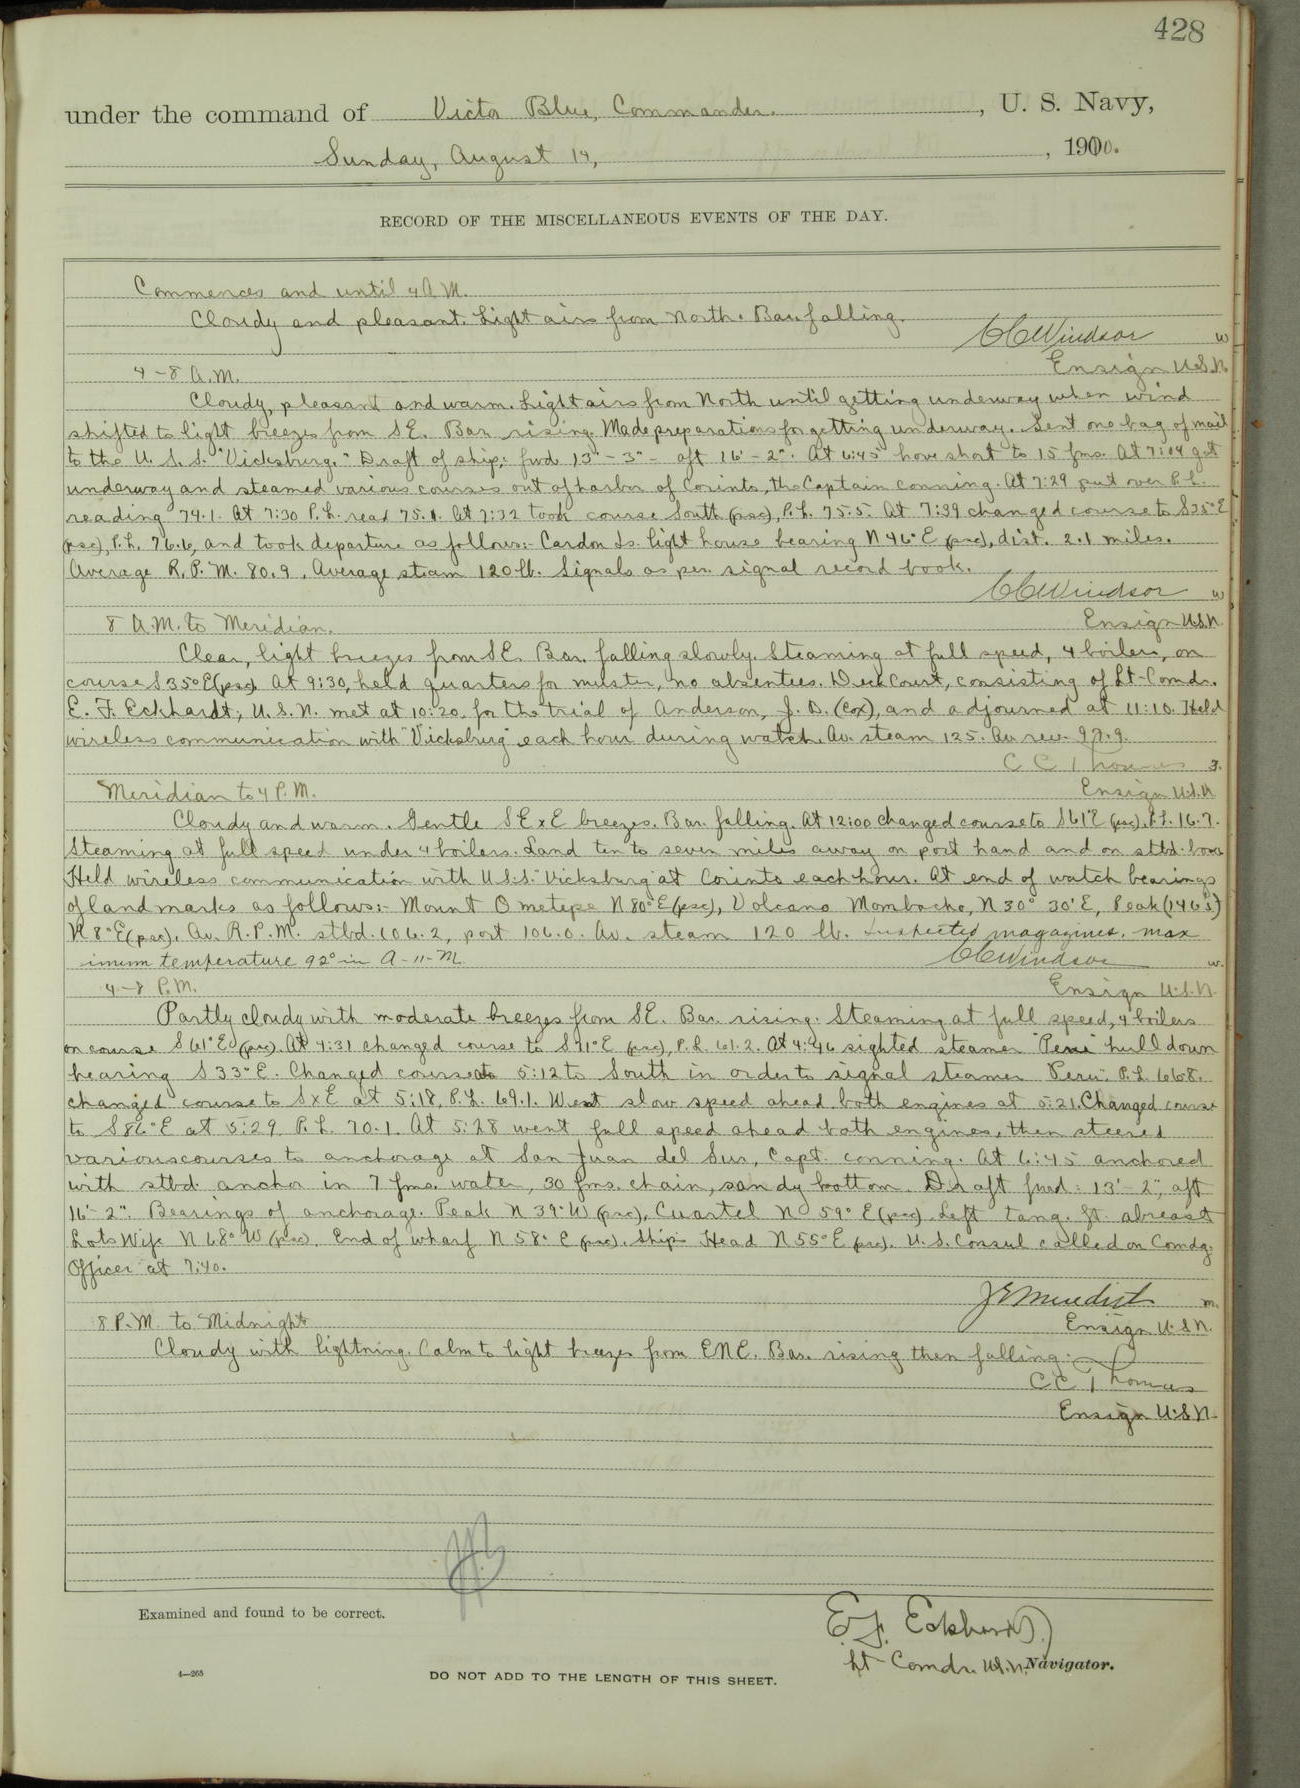 428
under the command of Victor Blue, Commander. , U. S. Navy,
Sunday, August 14, , 1910.
RECORD OF THE MISCELLANEOUS EVENTS OF THE DAY.
Commences and until 4 A.M.
Cloudy and pleasant. Light airs from North. Bar. falling.
CCWindsor w
4-8 A.M. Ensign U.S.N.
Cloudy, pleasant and warm. Light airs from North until getting underway when wind
shifted to light breezes from SE. Bar. rising. Made preparations for getting underway. Sent one bag of mail
to the U. S. S. "Vicksburg." Draft of ship: fwd 13'-3" - aft 16'-2". At 6:45 hove short to 15 fms. At 7:04 got
underway and steamed various courses out of harbor of Corinto, the Captain conning. At 7:29 put over P.L.
reading 74.1. At 7:30 P.L. read 75.1. At 7:32 took course South (psc), P.L. 75.5. At 7:39 changed course to S35°E
(psc), P.L. 76.6, and took departure as follows:- Cardon Is. light house bearing N46°E (psc), dist. 2.1 miles.
Average R.P.M. 80.9. Average steam 120 lb. Signals as per signal record book.
CCWindsor w
8 A.M. to Meridian. Ensign U.S.N.
Clear, light breezes from SE. Bar. falling slowly. Steaming at full speed, 4 boilers, on
course S35°E (psc). At 9:30, held quarters for muster, no absentees. Deck Court, consisting of Lt-Comdr.
E. F. Eckhardt, U.S.N. met at 10:20, for the trial of Anderson, J. D. (Cox), and adjourned at 11:10. Held
wireless communication with "Vicksburg" each hour during watch. Av. steam 125. Av. rev. 97.9.
C C Thomas 3.
Meridian to 4 P.M. Ensign U.S.N.
Cloudy and warm. Gentle SExE breezes. Bar. falling. At 12:00 changed course to S61°E (psc), P.L. 16.7.
Steaming at full speed under 4 boilers. Land ten to seven miles away on port hand and on stbd. bow
Held wireless communication with U.S.S. "Vicksburg" at Corinto each hour. At end of watch bearings
of land marks as follows:- Mount Ometepe N80°E (psc), Volcano Mombacho, N30° 30'E, Peak (1465)
N8°E (psc). Av. R.P.M. stbd. 106.2, port 106.0. Av. steam 120 lb. Inspected magazines. max
imum temperature 92° in A-11-M CCWindsor w.
4-8 P.M. Ensign U.S.N.
Partly cloudy with moderate breezes from SE. Bar. rising. Steaming at full speed, 4 boilers
on course S61°E (psc). At 4:31 changed course to S71°E (psc), P.L. 61.2. At 4:46 sighted steamer "Peru" hull down
bearing S33°E. Changed course at 5:12 to South in order to signal steamer "Peru". P.L. 66.8.
changed course to SxE at 5:18, P.L. 69.1. Went slow speed ahead both engines at 5:21. Changed course
to S86°E at 5:29 P.L. 70.1. At 5:28 went full speed ahead both engines, then steered
various courses to anchorage at San Juan del Sur, Capt. conning. At 6:45 anchored
with stbd. anchor in 7 fms. water, 30 fms. chain, sandy bottom. Draft fwd: 13'-2", aft
16'-2". Bearings of anchorage. Peak N39°W (psc), Cuartel N59°E (psc) Left tang. pt. abreast
Lots Wife N68°W (psc). End of wharf N58°E (psc). Ship's Head N55°E (psc). U.S. Consul called on Comdg.
Officer at 7:40.
JEMeredith m.
8 P.M. to Midnight Ensign U.S.N.
Cloudy with lightning. Calm to light breezes from ENE. Bar. rising then falling.
C C Thomas
Ensign U.S.N.
Examined and found to be correct.
E. F. Eckhardt
Lt Comdr. U.S.N. Navigator.
4—265
DO NOT ADD TO THE LENGTH OF THIS SHEET.